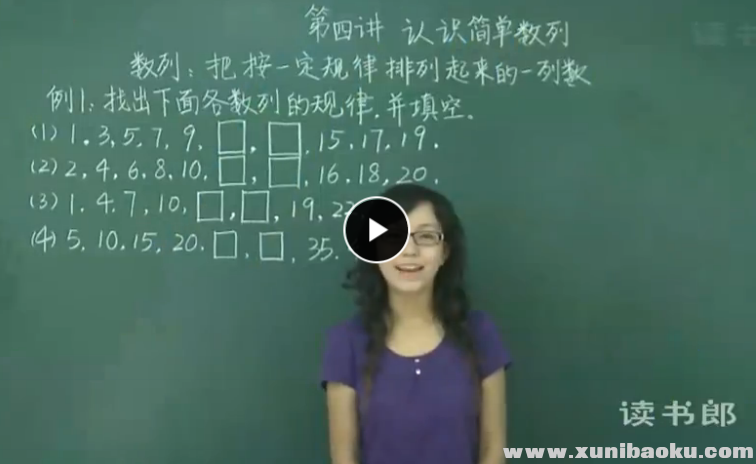 第四讲 认识简单数列
数列：把按一定规律排列起来的一列数
例1：找出下面各数列的规律，并填空。
(1) 1，3，5，7，9，□，□，15，17，19．
(2) 2，4，6，8，10，□，□，16，18，20．
(3) 1，4，7，10，□，□，19，22
(4) 5，10，15，20，□，□，35．
读书郎
读书郎
www.xunibaoku.com